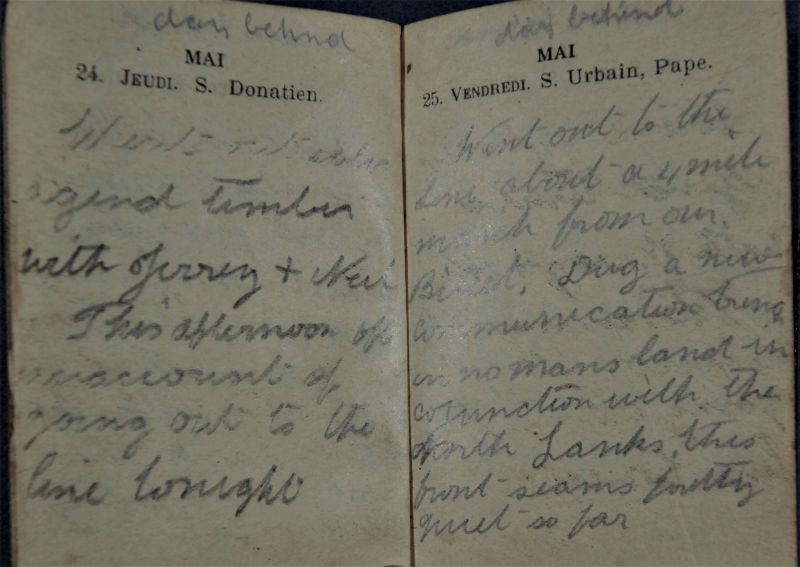 day behind
MAI
24. JEUDI. S. Donatien.
Went out
timber
with Jerrey + Neil
This afternoon off
account of
going out to the
line tonight
day behind
MAI
25. VENDREDI. S. Urbain, Pape.
Went out to the
line, about a 4 mile
march from our
Billet, Dug a new
communication trench
in nomans land in
cojunction with the
North Lanks, this
front seams pretty
quiet so far